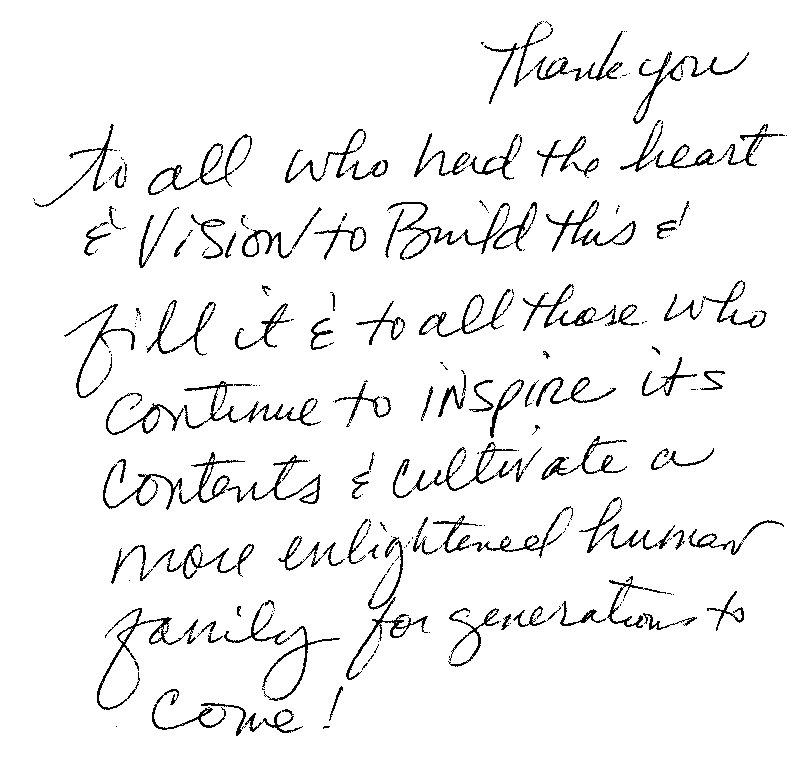 Thank you
to all who had the heart
& Vision to Build this &
fill it & to all those who
continue to inspire its
contents & cultivate a
more enlightened human
family for generations to
come!